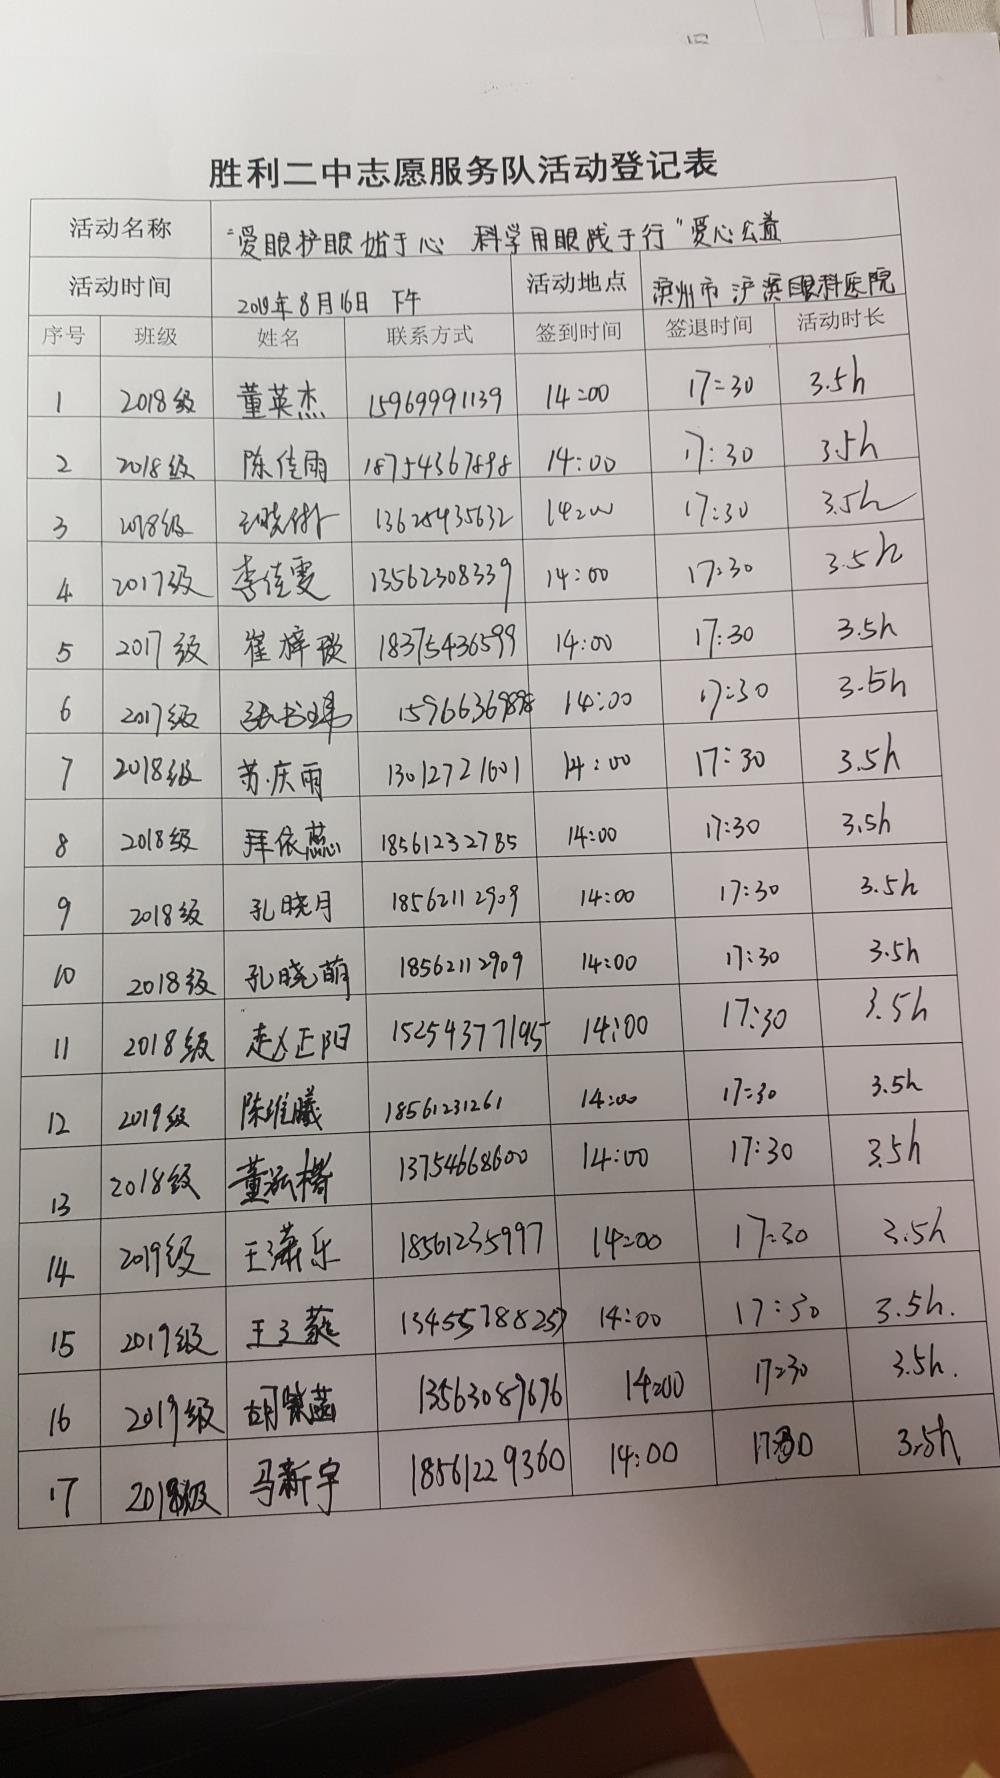 胜利二中志愿服务队活动登记表
活动名称 "爱眼护眼始于心 科学用眼践于行"爱心公益
活动时间 2019年8月16日 下午 活动地点 滨州市沪滨眼科医院
序号 班级 姓名 联系方式 签到时间 签退时间 活动时长
1 2018级 董英杰 15969991139 14:00 17:30 3.5h
2 2018级 陈佳雨 18754367898 14:00 17:30 3.5h
3 2018级 13625435632 14:00 17:30 3.5h
4 2017级 李佳雯 13562308339 14:00 17:30 3.5h
5 2017级 崔梓琰 18375436599 14:00 17:30 3.5h
6 2017级 张书玮 14:00 17:30 3.5h
7 2018级 苏庆雨 13012721601 14:00 17:30 3.5h
8 2018级 拜依蕊 18561232785 14:00 17:30 3.5h
9 2018级 孔晓月 18562112909 14:00 17:30 3.5h
10 2018级 孔晓萌 18562112909 14:00 17:30 3.5h
11 2018级 赵正阳 15254377195 14:00 17:30 3.5h
12 2019级 陈维曦 18561231261 14:00 17:30 3.5h
13 2018级 13754668600 14:00 17:30 3.5h
14 2019级 王潇乐 18561235997 14:00 17:30 3.5h
15 2019级 13455788257 14:00 17:30 3.5h.
16 2019级 胡紫菡 13563089696 14:00 17:30 3.5h.
17 2018级 马新宇 18561229360 14:00 17:30 3.5h